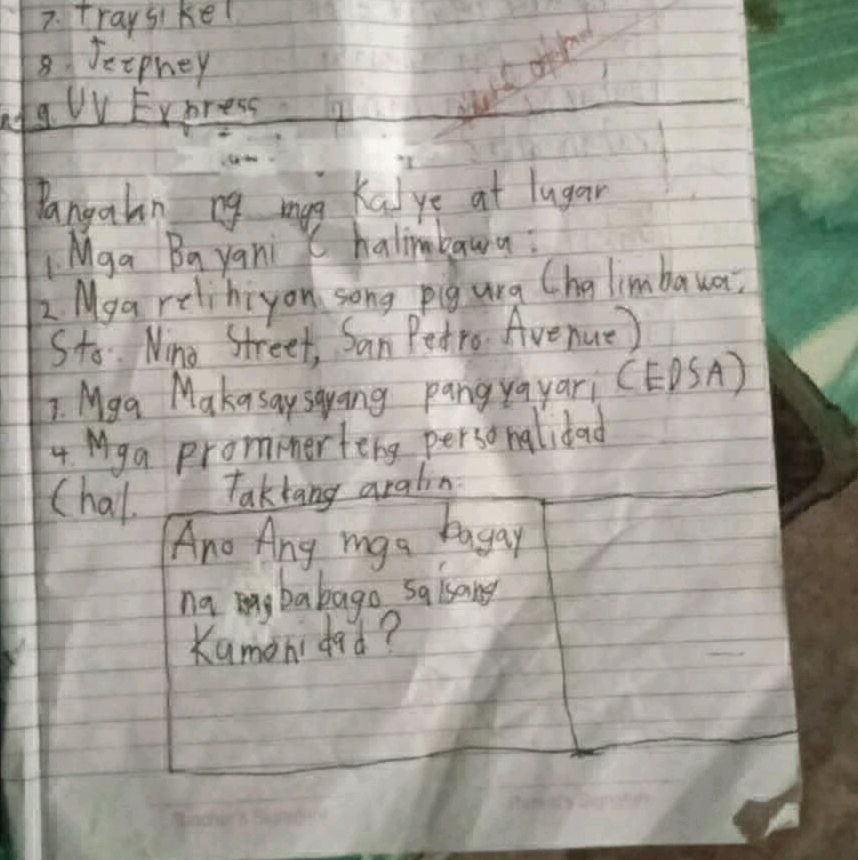 7. Traysikel
8. Jeepney
9. UV Express
Pangalan ng mga Kalye at lugar
1. Mga Bayani (halimbawa:
2. Mga relihiyon song pigura (halimbawa:
Sto. Nino Street, San Pedro Avenue)
3. Mga Makasaysayang pangyayari (EDSA)
4. Mga prominerteng personalidad
(hal. Taktang aralin:
Ano Ang mga bagay
na nagbabago sa isang
Kamonidad?
Teacher's Signature Parent's Signature